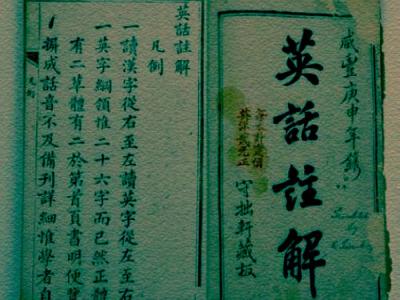 咸豐庚申年鐫
英話註解
守拙軒藏板
英話註解
凡例
一讀漢字從右至左讀英字從左至右
一英字綱領惟二十六字而已然正體
有二草體有二於第首頁書明便
撰成話音不及備刊詳細惟學者自
凡例